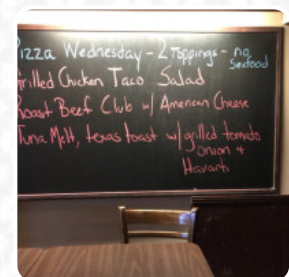 izza Wednesday - 2 Toppings - no
Seafood
rilled Chicken Taco Salad
oast Beef Club w/ American Cheese
Tuna Melt, texas toast w/ grilled tomato
onion +
Havarti